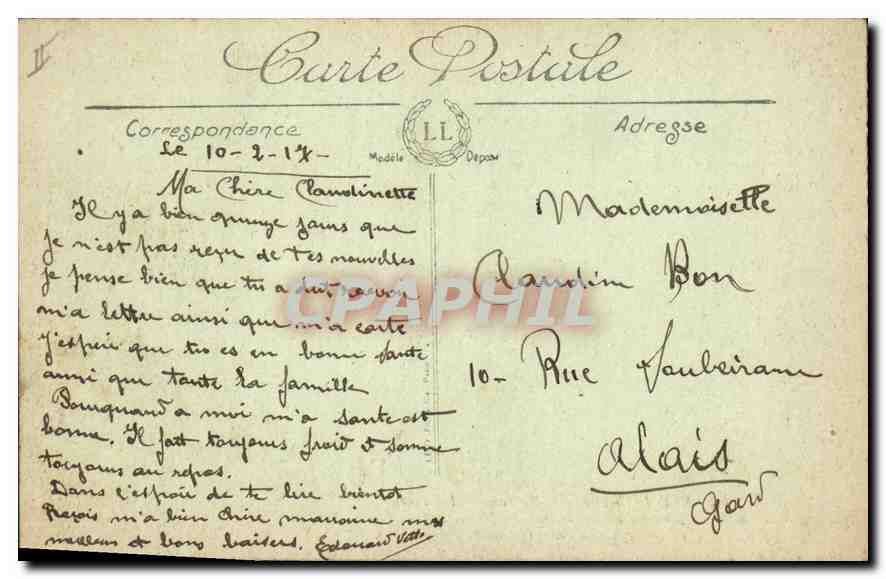 II
Carte Postale
Correspondance
Adresse
LL
Modèle Déposé
Le 10-2-17-
Ma Chère Claudinette
Il y a bien quinze jours que
je n'est pas reçu de tes nouvelles
je pense bien que tu a dut recevoir
m'a lettre ainsi que m'a carte
j'espère que tu es en bonne santé
ainsi que toute la famille
a moi m'a santé est
bonne. Il fait toujours froid et somme
toujours au repos.
Dans l'espoir de te lire bientôt
Reçois m'a bien chère marraine mes
meilleurs et bons baisers. Edouard
Mademoiselle
Claudine Bon
10- Rue Soubeirane
Alais
Gard
CPAPHIL